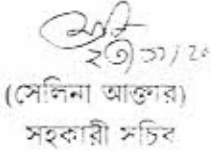 (সেলিনা আক্তার)
সহকারী সচিব